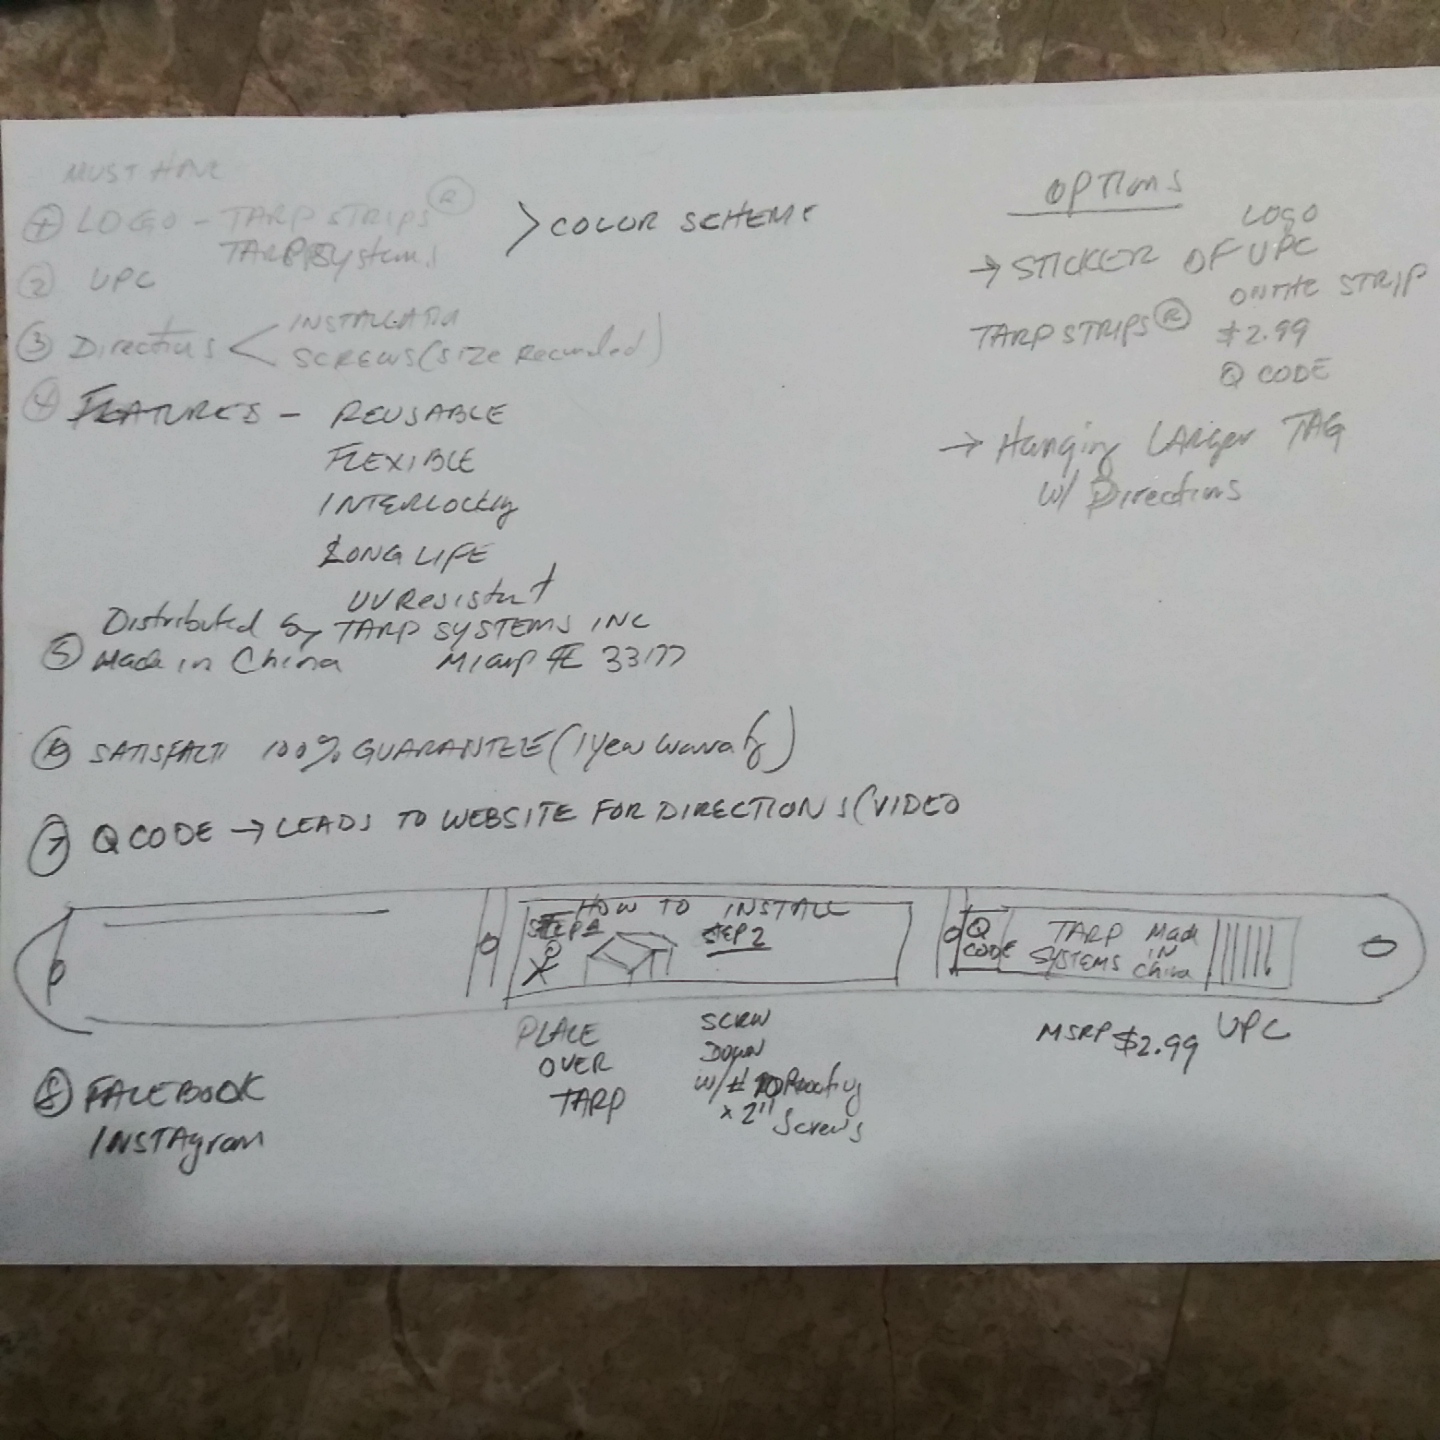 MUST HAVE
① LOGO - TARP STRIPS ®
TARP Systems > COLOR SCHEME
② UPC
③ Directions < INSTALLATION
SCREWS (SIZE Recomded)
④ FEATURES - REUSABLE
FLEXIBLE
INTERLOCKing
LONG LIFE
UV Resistant
Distributed by TARP SYSTEMS INC
⑤ Made in China Miami FL 33177
⑥ SATISFACTI 100% GUARANTEE (1 year warranty)
⑦ Q CODE → LEADS TO WEBSITE FOR DIRECTIONS (VIDEO
OPTIONS
LOGO
→ STICKER OF UPC
ON THE STRIP
TARP STRIPS ® $2.99
Q CODE
→ Hanging LARger TAG
w/ Directions
HOW TO INSTALL
STEP 1
STEP 2
Q CODE
TARP SYSTEMS
Made IN China
PLACE
OVER
TARP
SCRW
DOWN
w/ # 10 Roofing
x 2" Screws
MSRP $2.99 UPC
⑧ FACEBOOK
INSTAgram